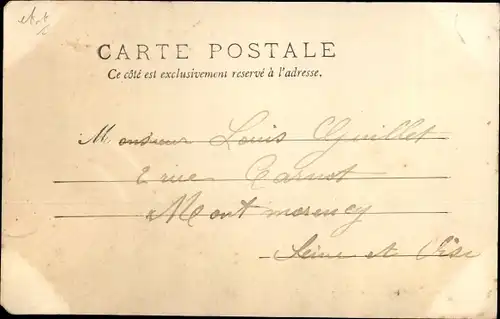 CARTE POSTALE
Ce côté est exclusivement reservé à l'adresse.
Monsieur Louis Guillet
2 rue Carnot
Montmorency
Seine et Oise